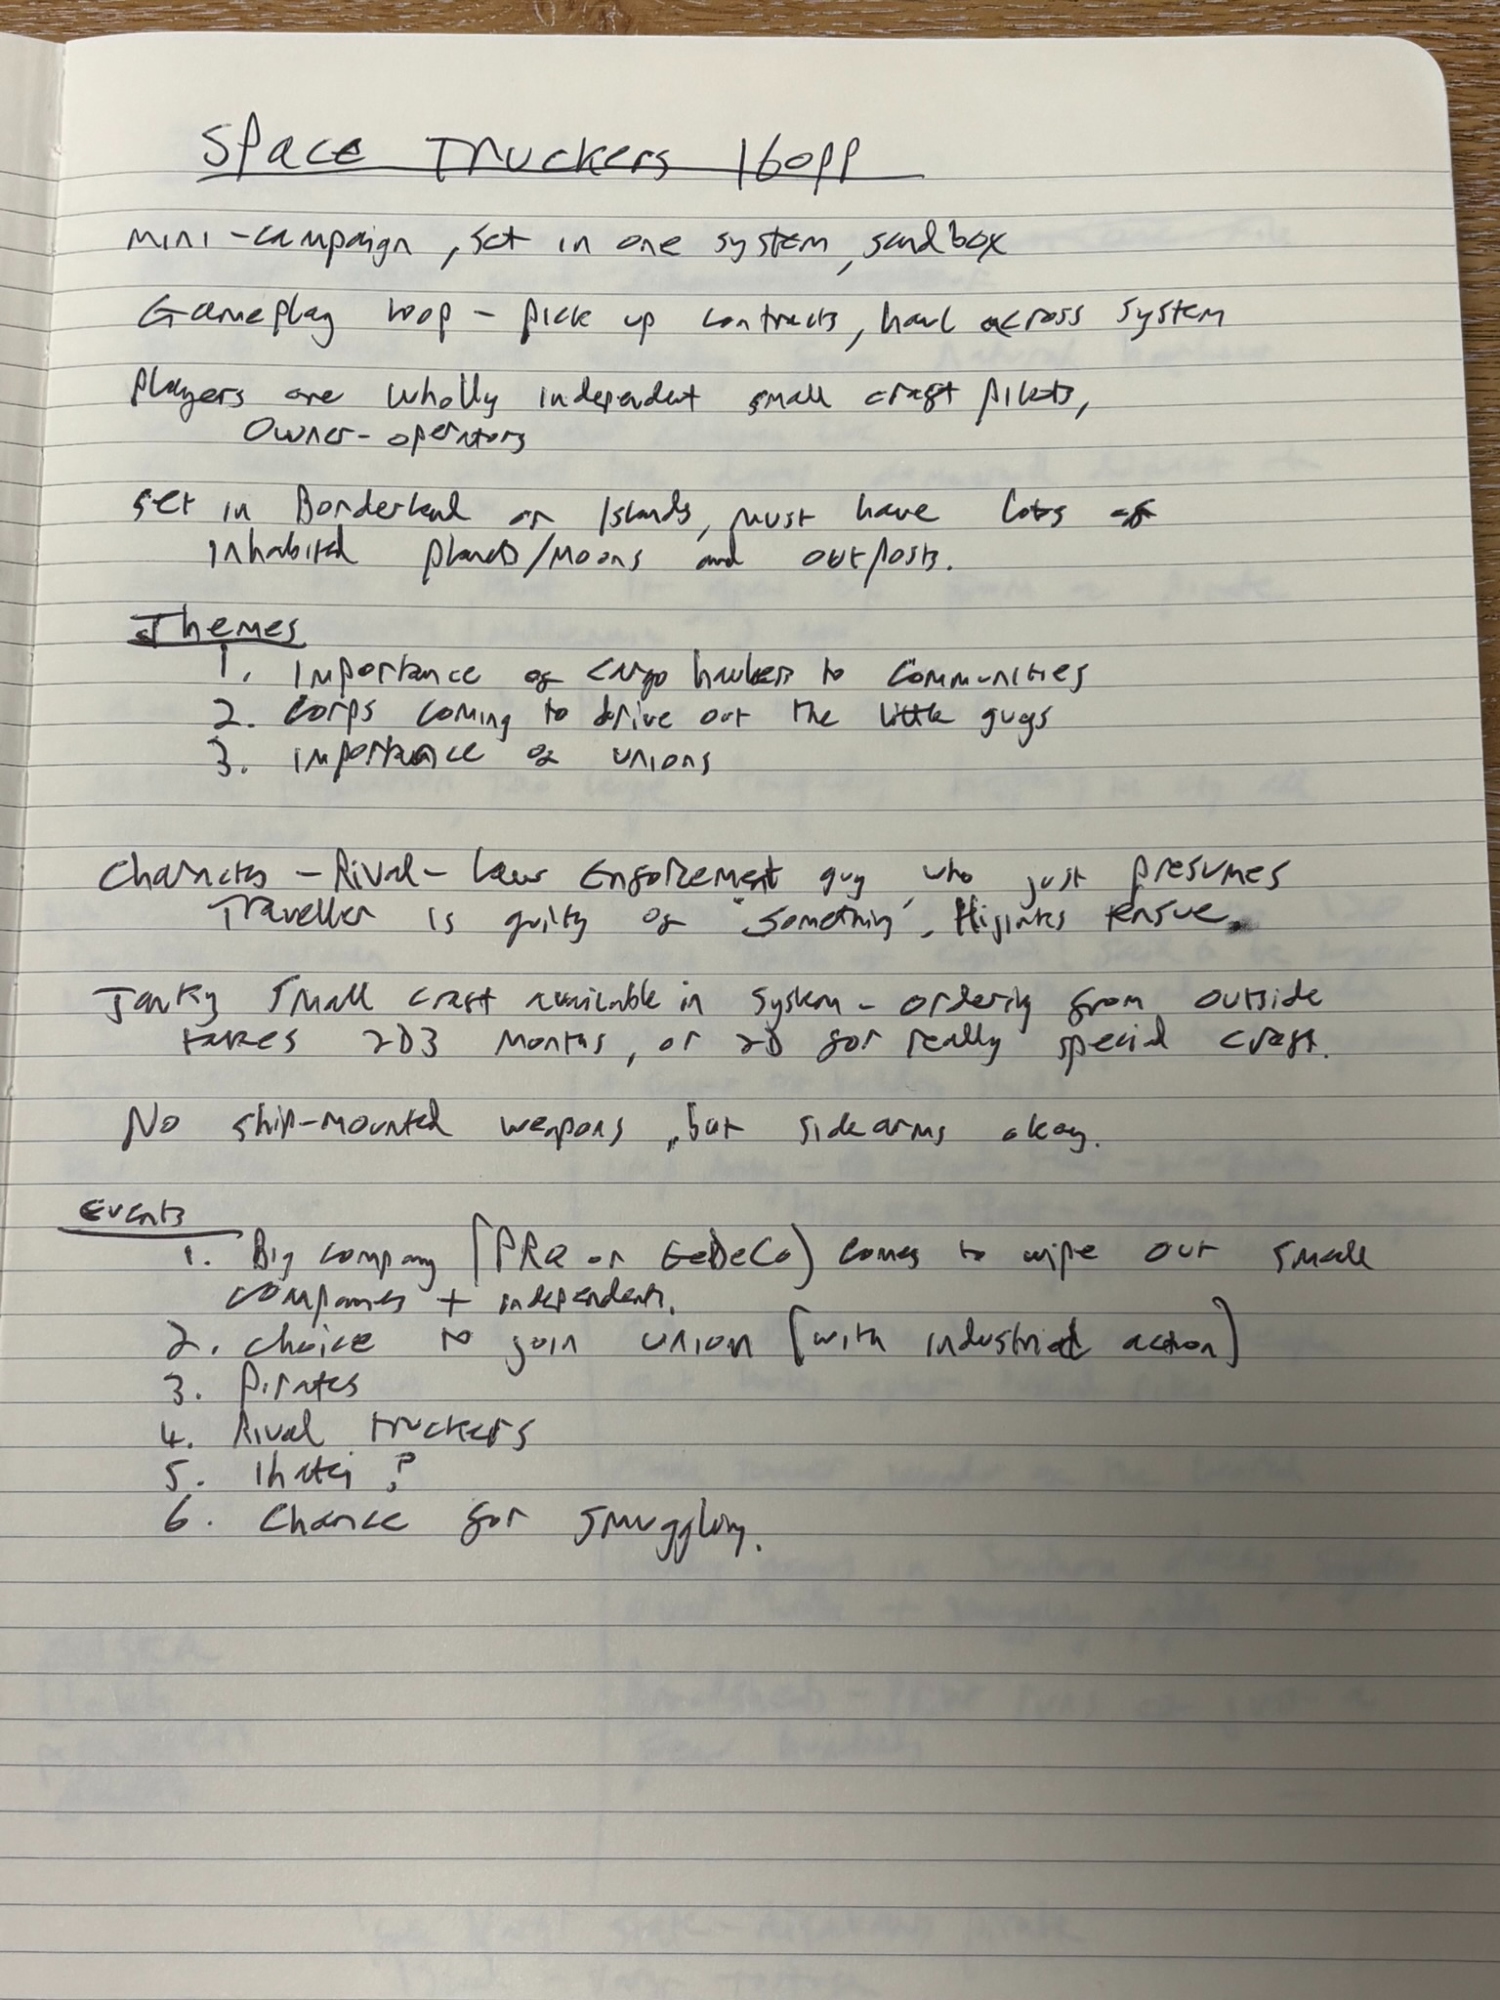 Space Truckers 160pp
Mini-campaign, set in one system, sandbox
Gameplay loop - pick up contracts, haul across system
Players are wholly independent small craft pilots,
Owner-operators
Set in Borderland or Islands, must have lots of
inhabited planets/moons and outposts.
Themes
1. Importance of cargo haulers to communities
2. Corps coming to drive out the little guys
3. Importance of unions
Characters - Rival - Law Enforcement guy who just presumes
Traveller is guilty of 'something'. Hijinks ensue.
Janky small craft available in system - ordering from outside
takes 2D3 months, or 2D for really special craft.
No ship-mounted weapons, but sidearms okay.
Events
1. Big company (PRQ or GeDeCo) comes to wipe out small
companies + independents.
2. Choice to join union (with industrial action)
3. Pirates
4. Rival truckers
5. Ihatei?
6. Chance for smuggling.